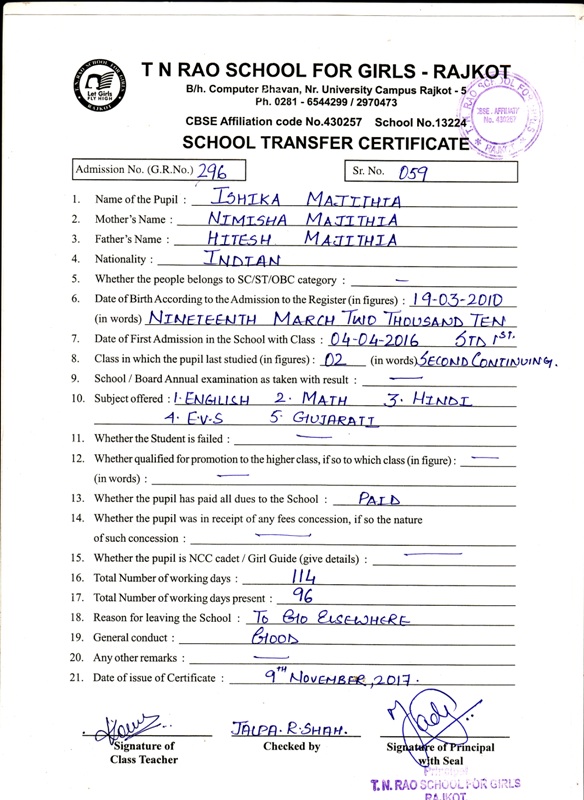 T. N. RAO SCHOOL FOR GIRLS
Let Girls
FLY HIGH
RAJKOT
T N RAO SCHOOL FOR GIRLS - RAJKOT
B/h. Computer Bhavan, Nr. University Campus Rajkot - 5
Ph. 0281 - 6544299 / 2970473
CBSE Affiliation code No.430257 School No.13224
T. N. RAO SCHOOL FOR GIRLS
CBSE. AFFILIATION
No. 430257
RAJKOT
SCHOOL TRANSFER CERTIFICATE
Admission No. (G.R.No.) 296 Sr. No. 059
1. Name of the Pupil : ISHIKA MAJITHIA
2. Mother's Name : NIMISHA MAJITHIA
3. Father's Name : HITESH MAJITHIA
4. Nationality : INDIAN
5. Whether the people belongs to SC/ST/OBC category : —
6. Date of Birth According to the Admission to the Register (in figures) : 19-03-2010
(in words) NINETEENTH MARCH TWO THOUSAND TEN
7. Date of First Admission in the School with Class : 04-04-2016 STD 1ST.
8. Class in which the pupil last studied (in figures) : 02 (in words) SECOND CONTINUING.
9. School / Board Annual examination as taken with result : —
10. Subject offered : 1. ENGLISH 2. MATH 3. HINDI
4. E.V.S 5. GUJARATI
11. Whether the Student is failed : —
12. Whether qualified for promotion to the higher class, if so to which class (in figure) : —
(in words) : —
13. Whether the pupil has paid all dues to the School : PAID
14. Whether the pupil was in receipt of any fees concession, if so the nature
of such concession : —
15. Whether the pupil is NCC cadet / Girl Guide (give details) : —
16. Total Number of working days : 114
17. Total Number of working days present : 96
18. Reason for leaving the School : TO GO ELSEWHERE
19. General conduct : GOOD
20. Any other remarks : —
21. Date of issue of Certificate : 9TH NOVEMBER, 2017.
JALPA. R. SHAH.
Signature of Checked by Signature of Principal
Class Teacher with Seal
Principal
T. N. RAO SCHOOL FOR GIRLS
RAJKOT